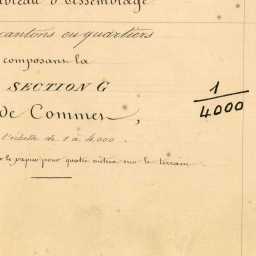 d'Assemblage
cantons ou quartiers
composans la
SECTION G
1
4000
de Commer,
l'échelle de 1 à 4.000.
le papier pour quatre mètres sur le terrain.